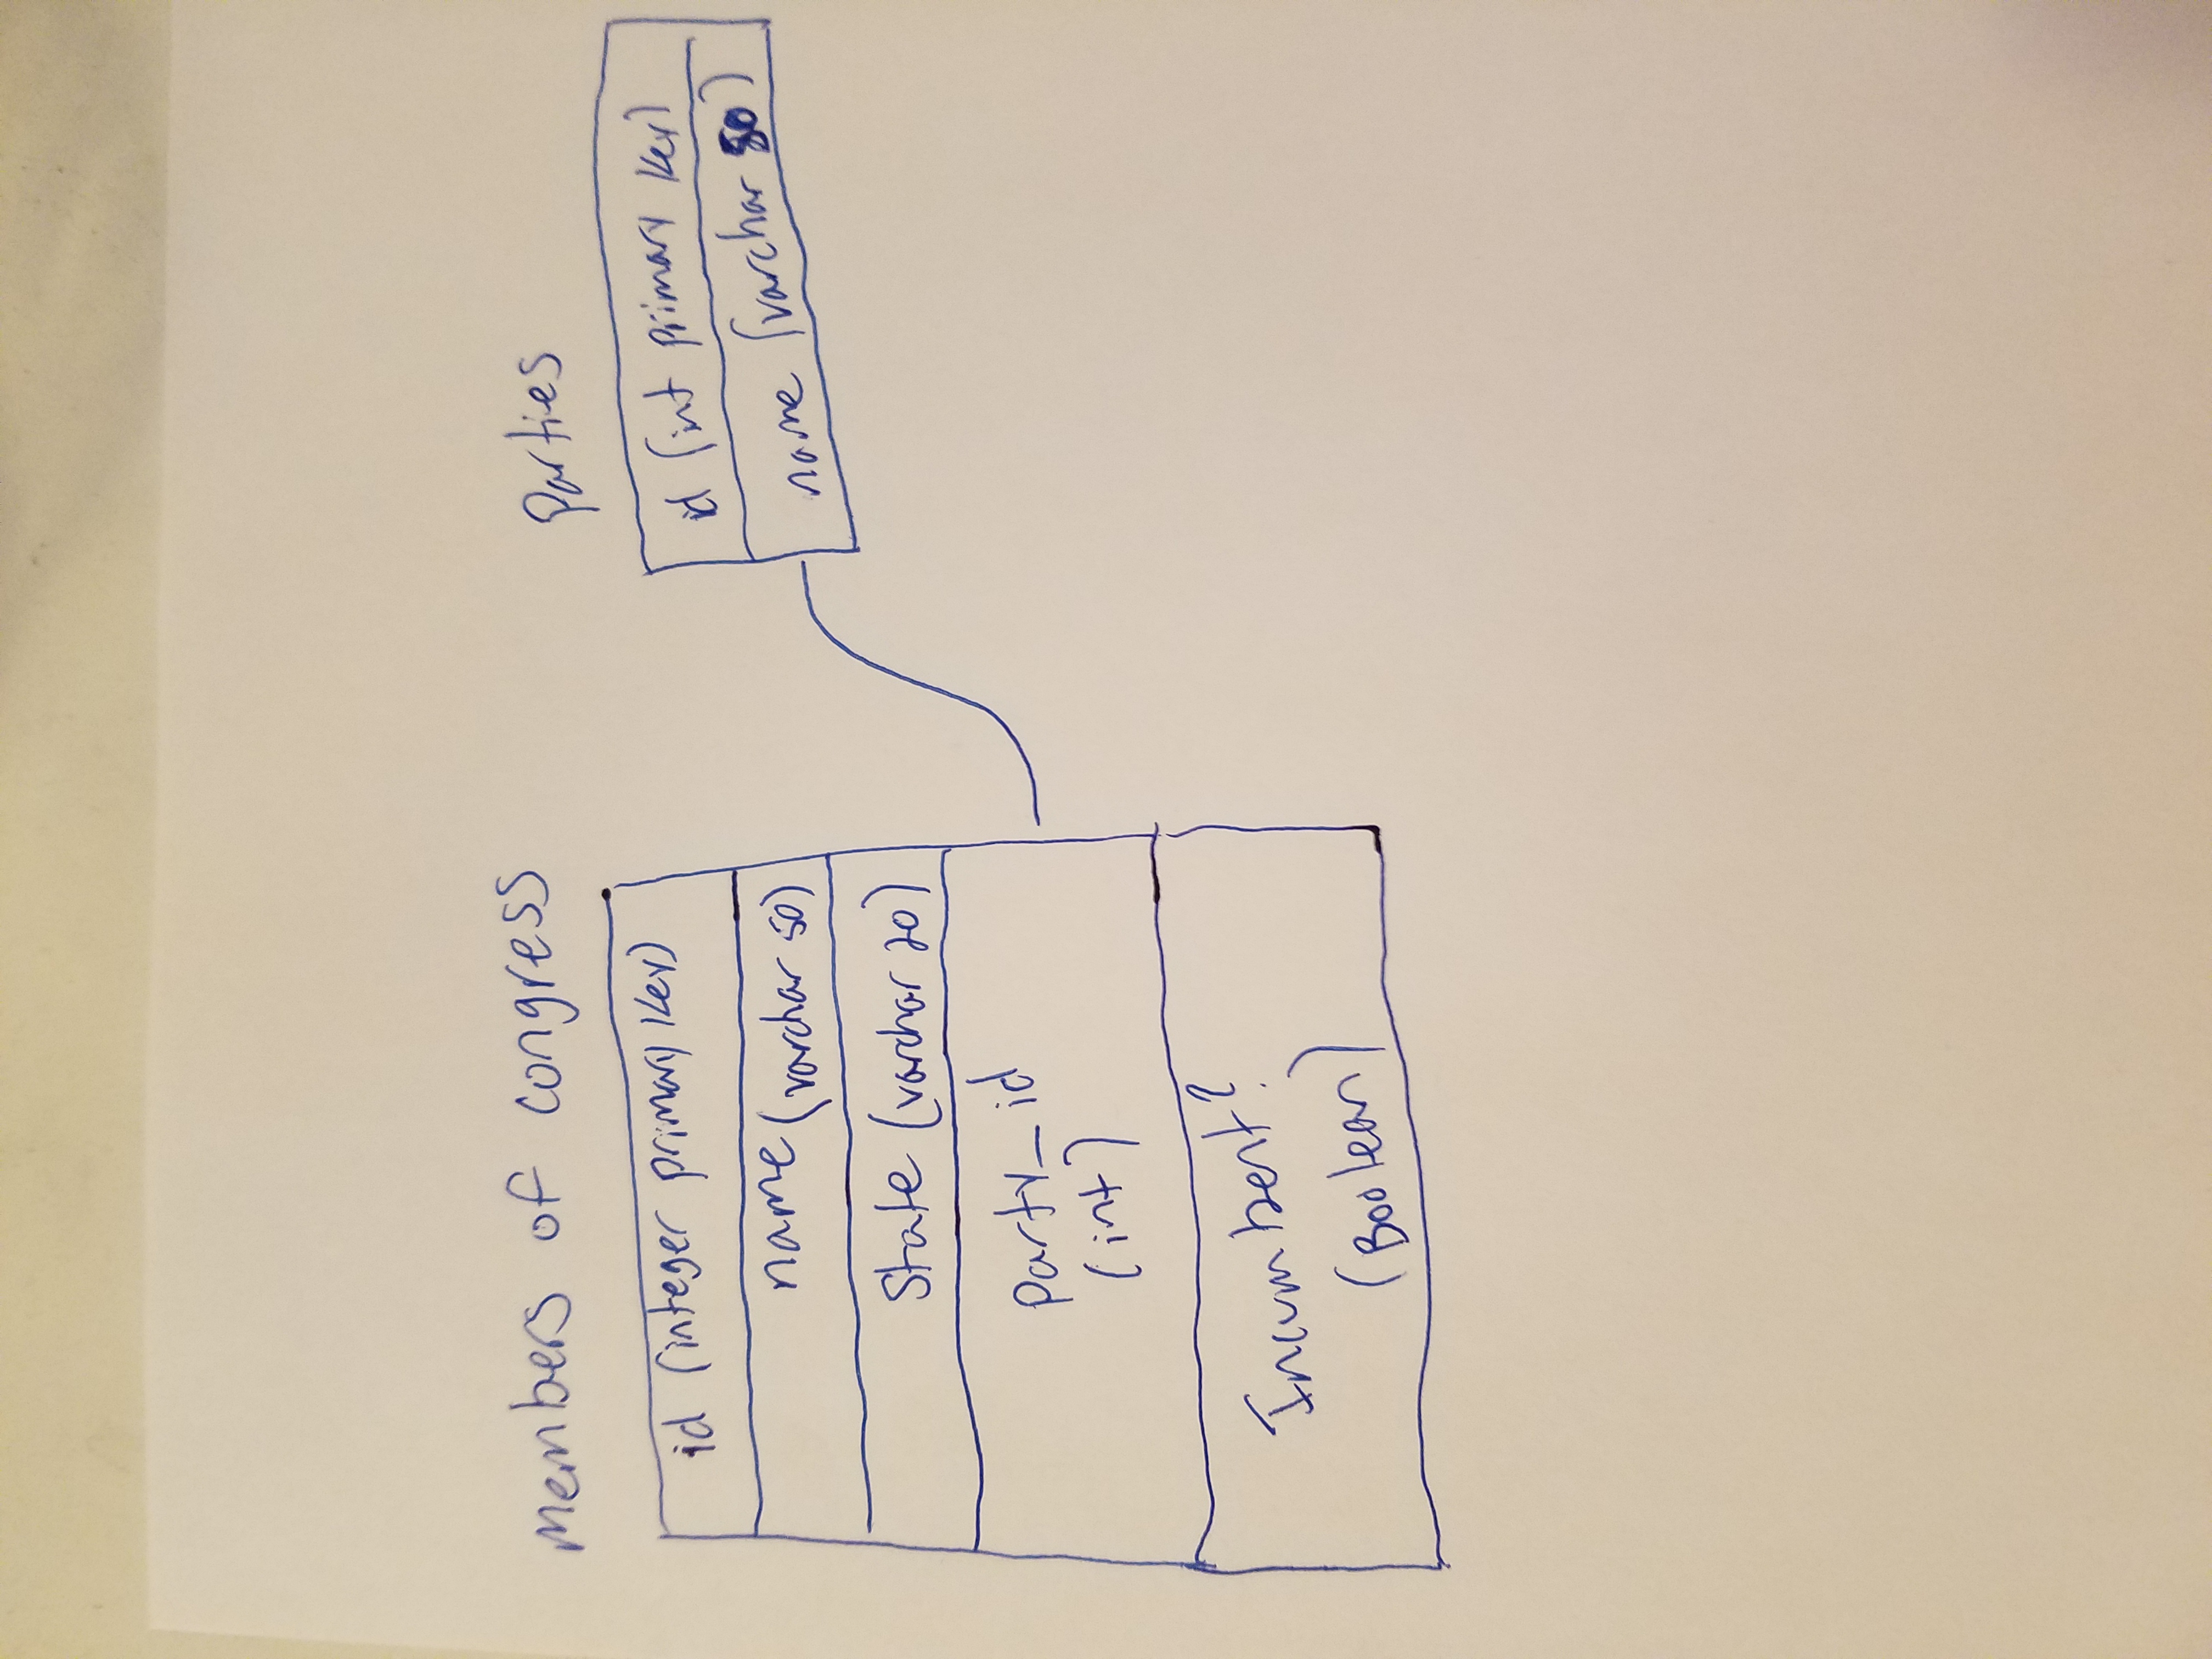 Members of congress
id (integer primary key)
name (varchar 50)
State (varchar 20)
Party_id
(int)
Incumbent?
(Boolean)
Parties
id (int primary key)
name (varchar 50)